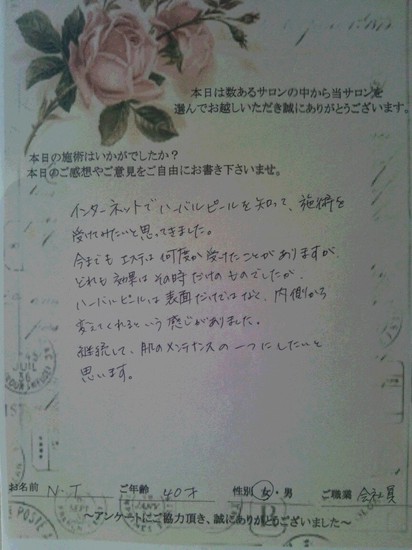 本日は数あるサロンの中から当サロンを
選んでお越しいただき誠にありがとうございます。
本日の施術はいかがでしたか？
本日のご感想やご意見をご自由にお書き下さいませ。
インターネットでハーバルピールを知って、施術を
受けてみたいと思ってきました。
今までも エステは何度か受けたことがありますが、
どれも効果はその時だけのものでしたが、
ハーバルピールは表面だけではなく、内側から
変えてくれるという感じがありました。
継続して、肌のメンテナンスの一つにしたいと
思います。
お名前 N・T ご年齢 40才 性別 女・男 ご職業 会社員
～アンケートにご協力頂き、誠にありがとうございました～